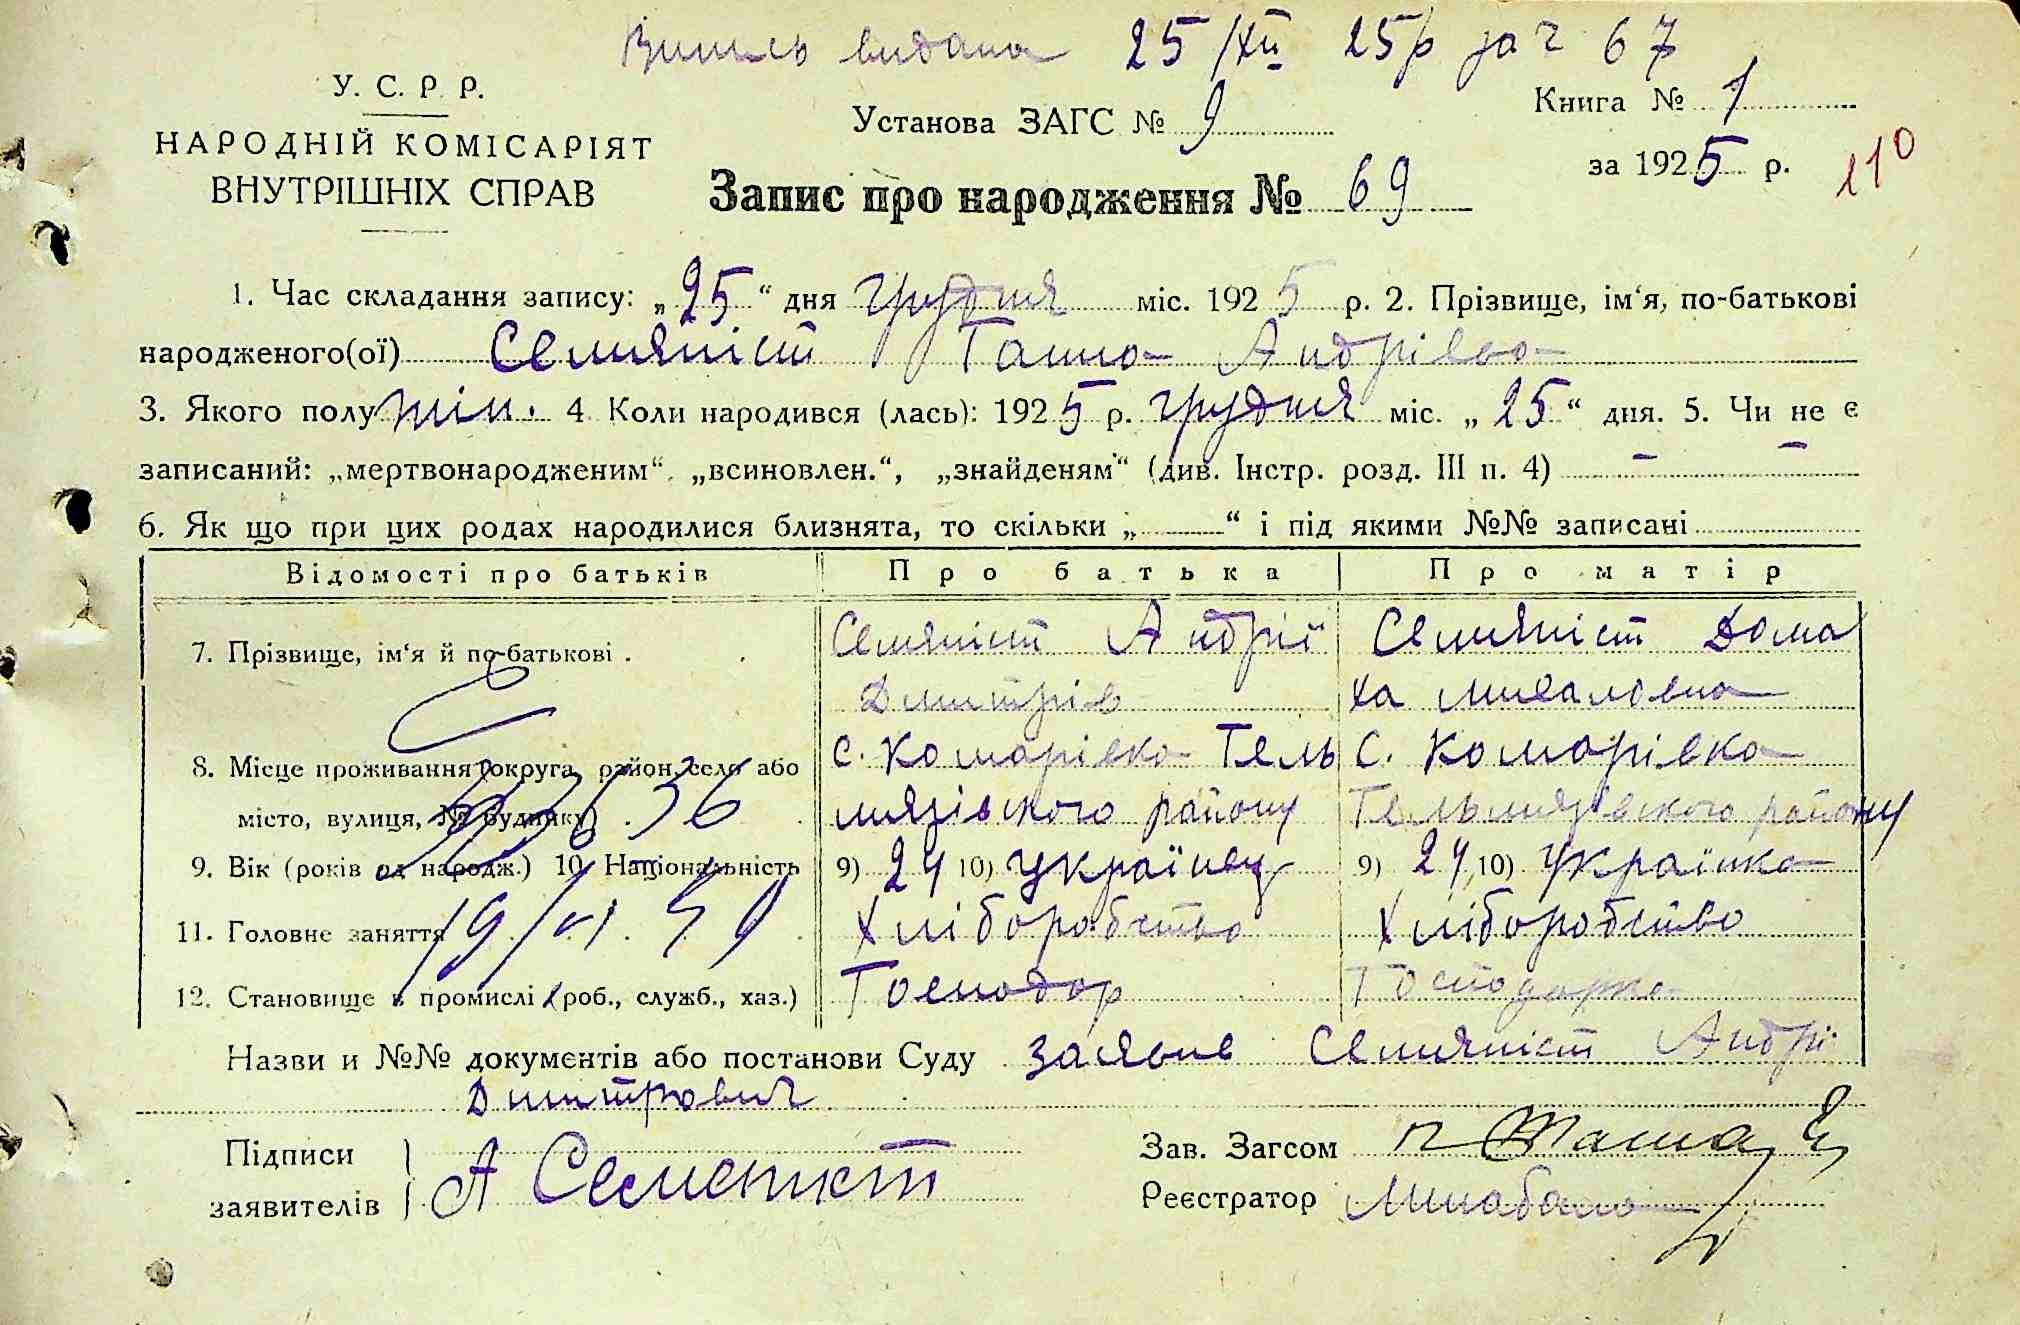 Випись видана 25/XII 25р за ч 67
У. С. Р. Р.
НАРОДНІЙ КОМІСАРІЯТ
ВНУТРІШНІХ СПРАВ
Установа ЗАГС № 9
Книга № 1
за 1925 р.
110
Запис про народження № 69
1. Час складання запису: „25“ дня грудня міс. 1925 р. 2. Прізвище, ім‘я, по-батькові
народженого(ої) Семяніст Ганна Андрівна
3. Якого полу жін. 4 Коли народився (лась): 1925 р. грудня міс. „25“ дня. 5. Чи не є
записаний: „мертвонародженим“, „всиновлен.“, „знайденям“ (див. Інстр. розд. III п. 4) — —
6. Як що при цих родах народилися близнята, то скільки „ “ і під якими №№ записані
Відомості про батьків Про батька Про матір
7. Прізвище, ім‘я й по-батькові . Семяніст Андрій Семяніст Дома
Дмитрів ха Михаловна
8. Місце проживання (округа, район, село або с. Комарівка Гель с. Комарівка
місто, вулиця, № будинку) мязівского району Гельмязівского району
36
9. Вік (років од народж.) 10. Національність 9) 24 10) Українец 9) 24 10) Українка
11. Головне заняття Хліборобство Хліборобство
19/VI
12. Становище в промислі (роб., служб., хаз.) Господар Господарка
Назви и №№ документів або постанови Суду заявив Семяніст Андрій
Дмитрович
Підписи
заявителів
А Семенист
Зав. Загсом
Реєстратор